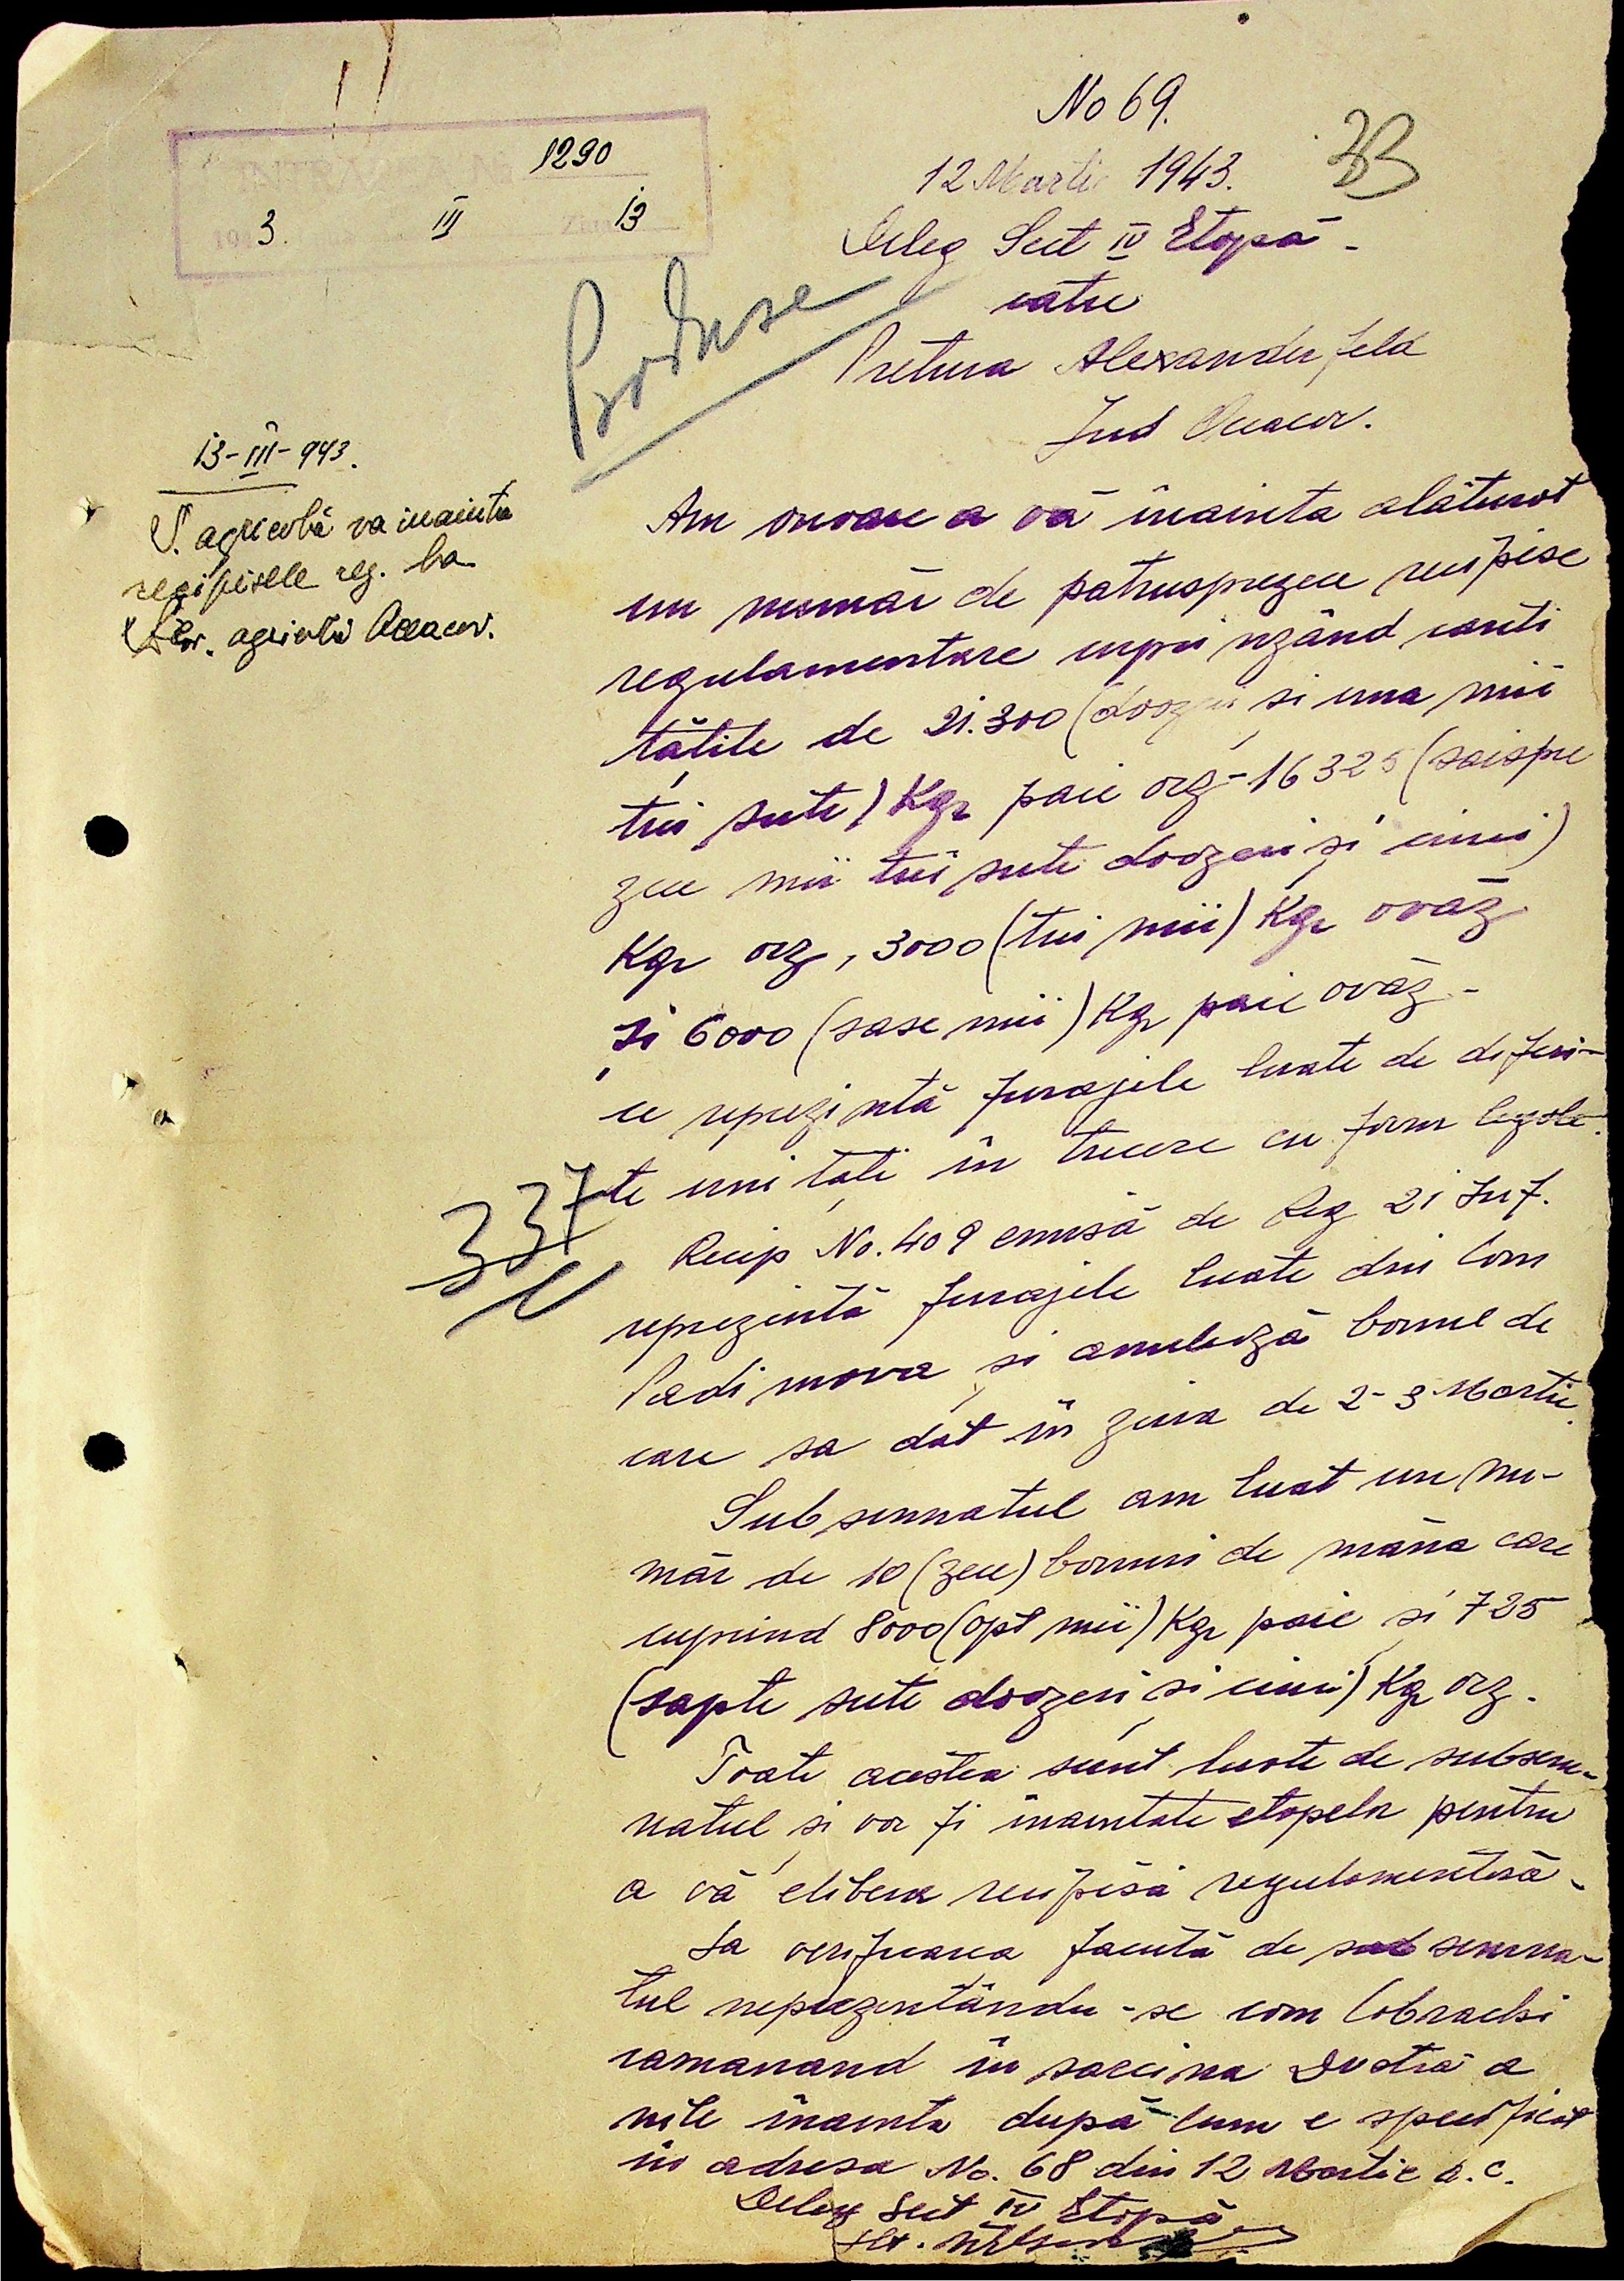 No 69.
33
12 Martie 1943.
INTRARE No 1290
1943. III Ziua 13
Deleg Sect IV Etapă -
catre
Pretura Alexanderfeld
Jud Oceacov.
Produse
13-III-943.
S. agricolă va inainta
recipisele reg. la
agricolă Oceacov.
Am onoare a vă înainta alăturat
un număr de patrusprezece recipise
regulamentare cuprinzând canti
tățile de 21.300 (doozeci si una mii
trei sute) Kgr paie orz - 16325 (saispre
zece mii trei sute doozeci și cinci)
Kgr orz, 3000 (trei mii) Kgr ovăz
și 6000 (sase mii) Kgr paie ovăz -
ce reprezintă furajele luate de diferi-
te unități în trecere cu forme legale.
337
Recip No. 409 emisă de Reg 21 Inf.
reprezintă furajele luate din Com
Vadimova și anulează bonul de
care sa dat în ziua de 2-3 Martie.
Subsemnatul am luat un nu-
măr de 10 (zece) bonuri de mâna care
cuprind 8000 (opt mii) Kgr paie și 725
(sapte sute doozeci și cinci) Kgr orz.
Toate acestea sunt luate de subsem-
natul și vor fi inaintate etapelor pentru
a vă elibera recipisă regulamentară -
La verificarea facută de subsemna-
tul neprezentându-se com
ramanand în sarcina Dvstră a
nile înainta după cum e specificat
în adresa No. 68 din 12 Martie a.c.
Deleg Sect IV Etapă